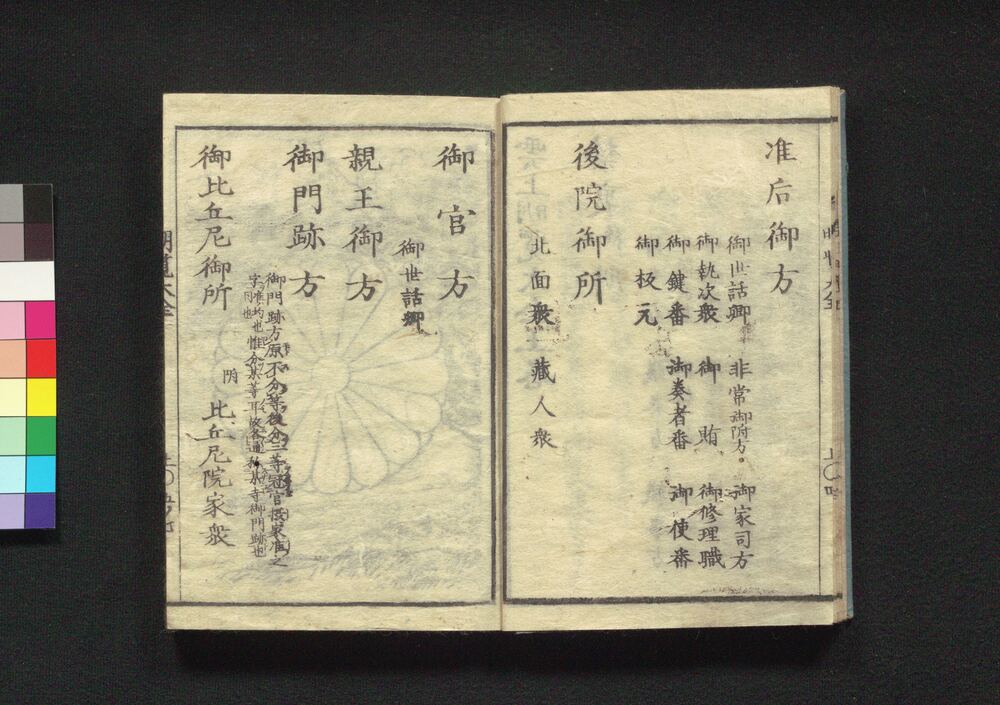 准后御方
御世話卿 非常御附方。 御家司方
御執次衆 御賄 御修理職
御鍵番 御奏者番 御使番
御板元
後院御所
北面衆 蔵人衆
御宮方
御世話卿
親王御方
御門跡方
御門跡方原不分等後分三等冠宮摂家准之
字准均也惟分其等耳故各通称某寺御門跡也
御比丘尼御所
附 比丘尼院家衆